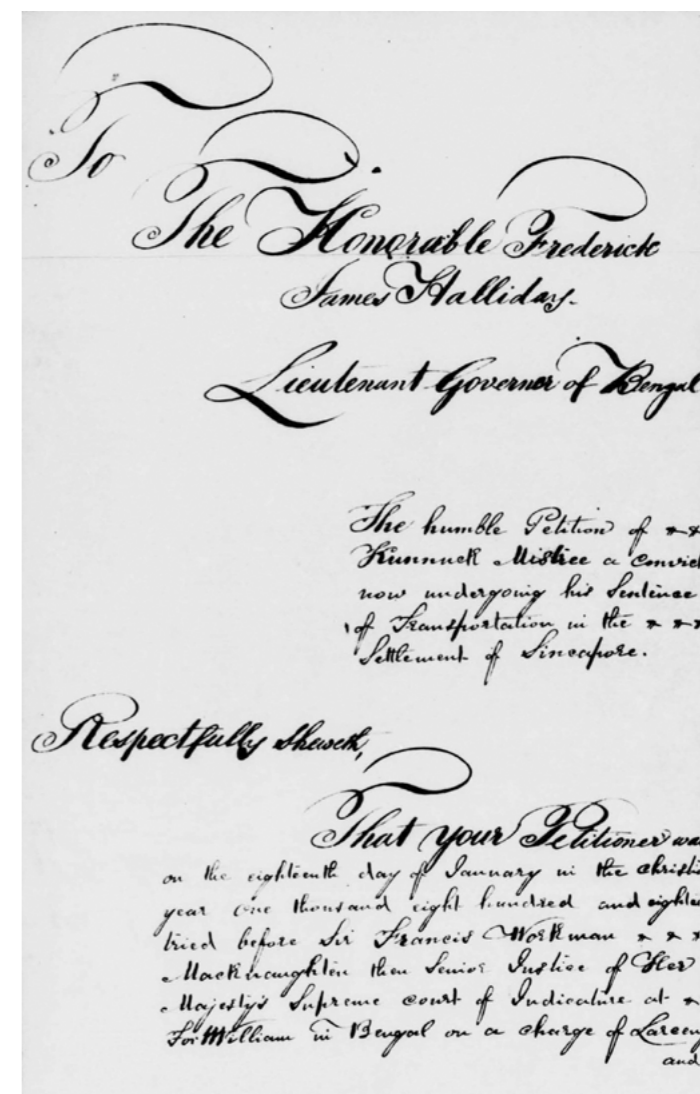 To
The Honorable Frederick
James Halliday.
Lieutenant Governer of Bengal
The humble Petition of
Kunnuck Mistree a convict
now undergoing his Sentence
of Transportation in the
Settlement of Sincapore.
Respectfully sheweth,
That your Petitioner wa
on the eighteenth day of January in the christi
year one thousand eight hundred and eighte
tried before Sir Francis Workman
Macknaughten then Senior Justice of Her
Majesty's Supreme court of Judicature at
Fort William in Bengal on a charge of Larceny
and